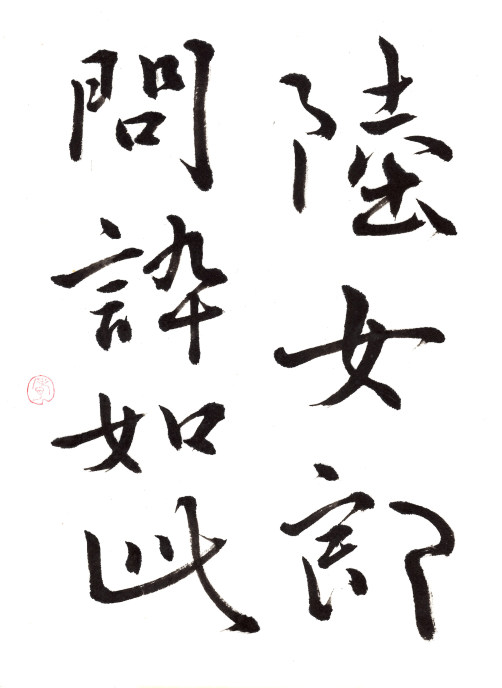 陸女郎
問誶如此